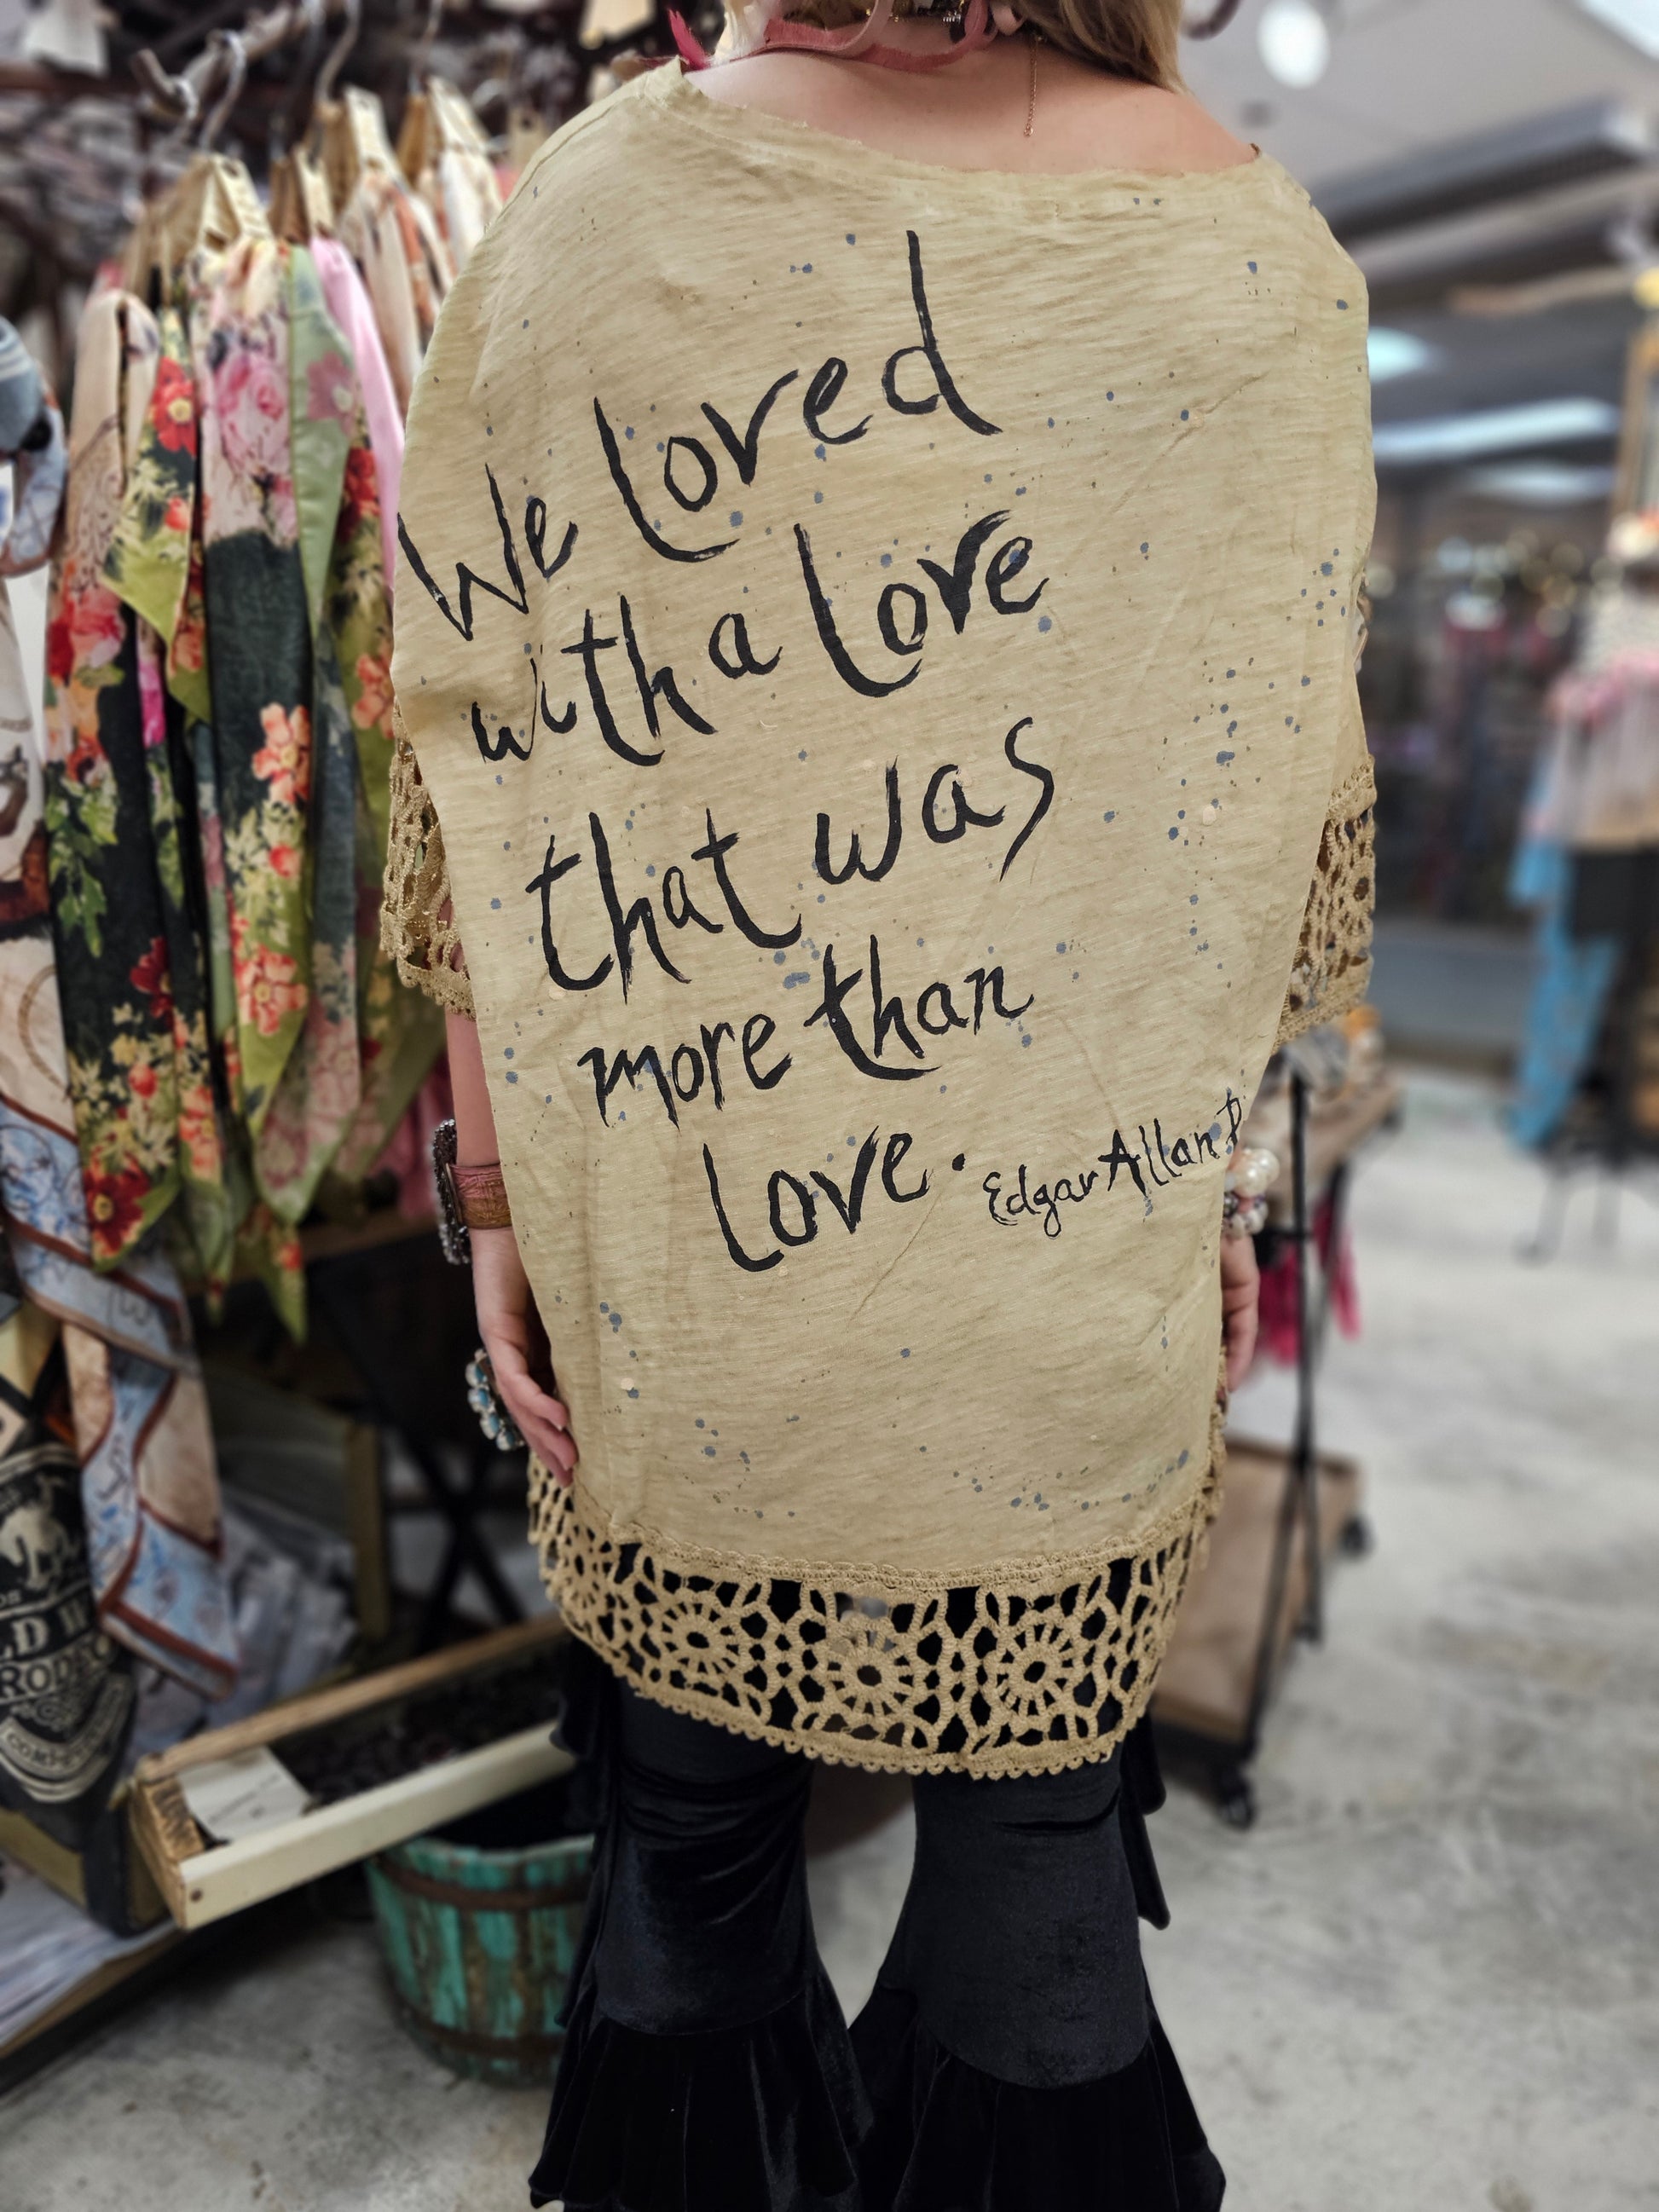 We Loved
with a Love
that was
more than
Love.
Edgar Allan P
RODEO